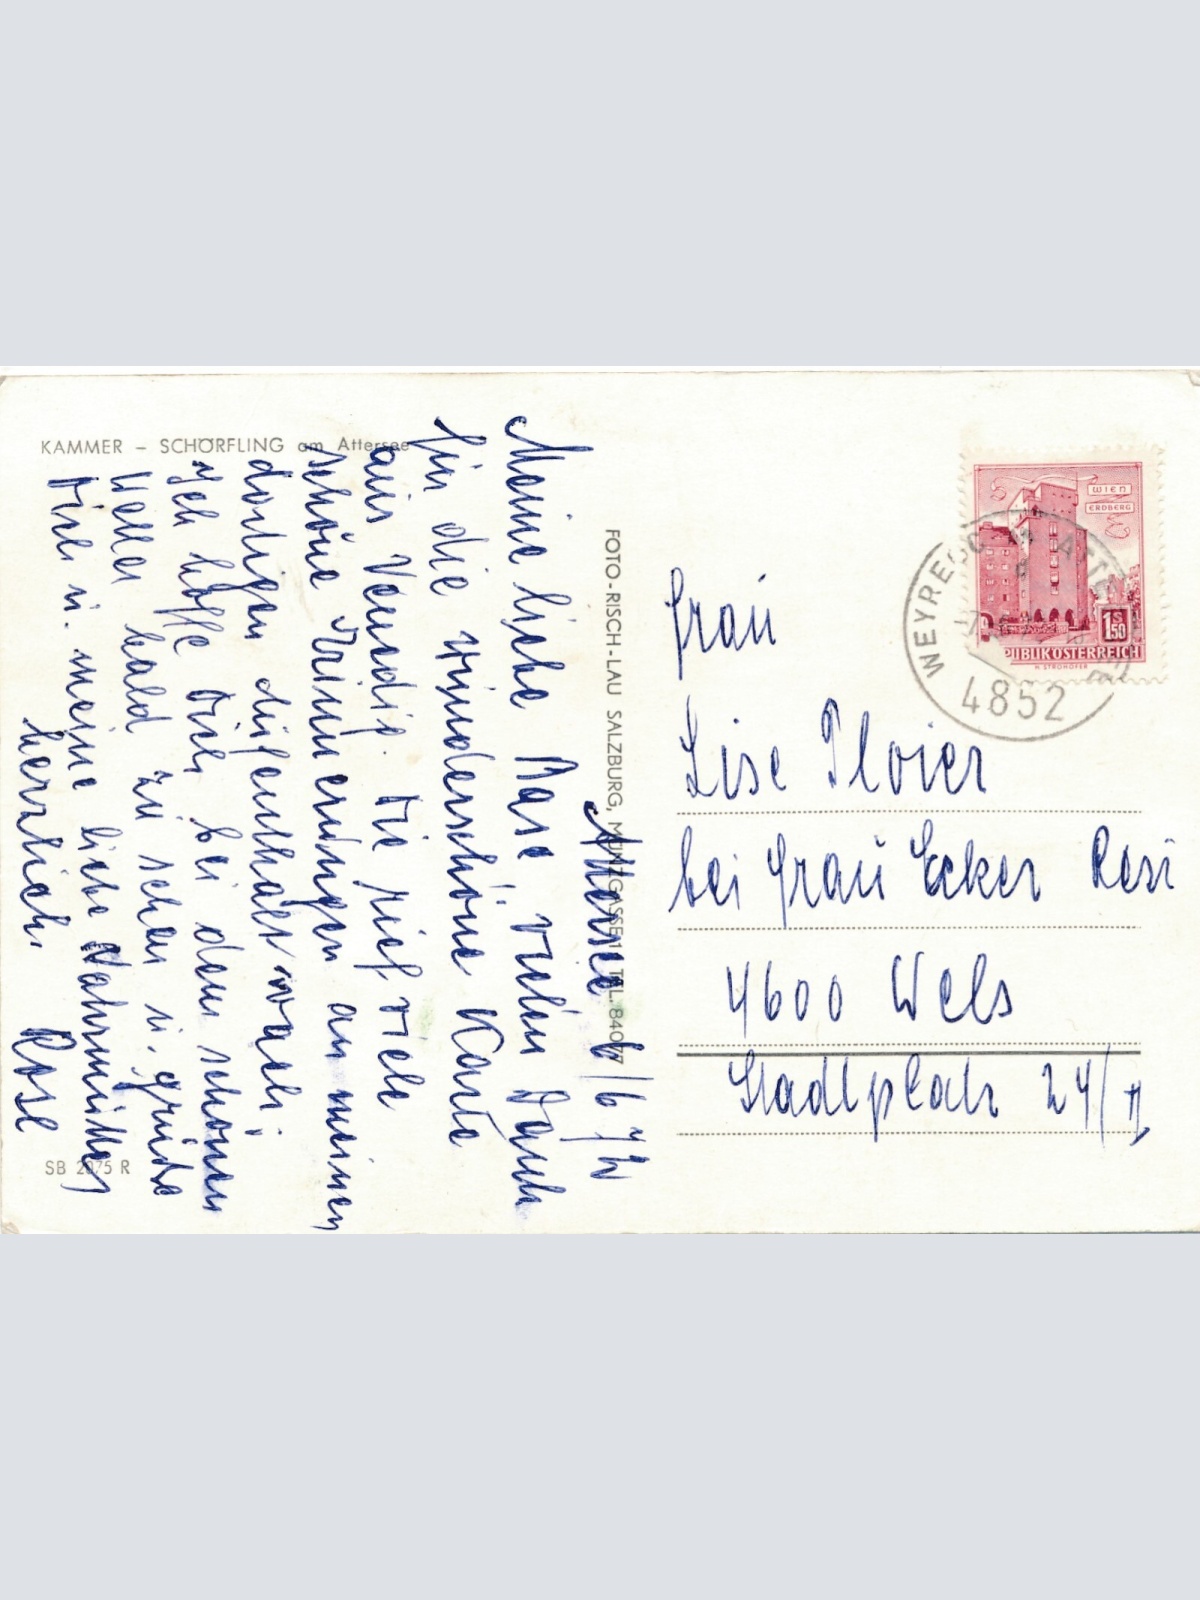 KAMMER – SCHÖRFLING am Attersee
Attersee 6/6 72
Meine liebe Base vielen Dank
für die wunderschöne Karte
aus Venedig. Sie rief viele
schöne Erinnerungen an meinen
dortigen Aufenthalt wach.
Ich hoffe Dich bei dem schönen
Wetter bald zu sehen u. grüße
Dich u. meine liebe
herzlich. Rose
SB 2975 R
FOTO-RISCH-LAU SALZBURG, MÜNZGASSE 1, TEL. 84097
WIEN
ERDBERG
1.50
S
REPUBLIK ÖSTERREICH
H. STROHOFER
WEYREGG AM ATTERSEE
4852
Frau
Lise Ploier
bei Frau Ecker Resi
4600 Wels
Stadtplatz 24/II